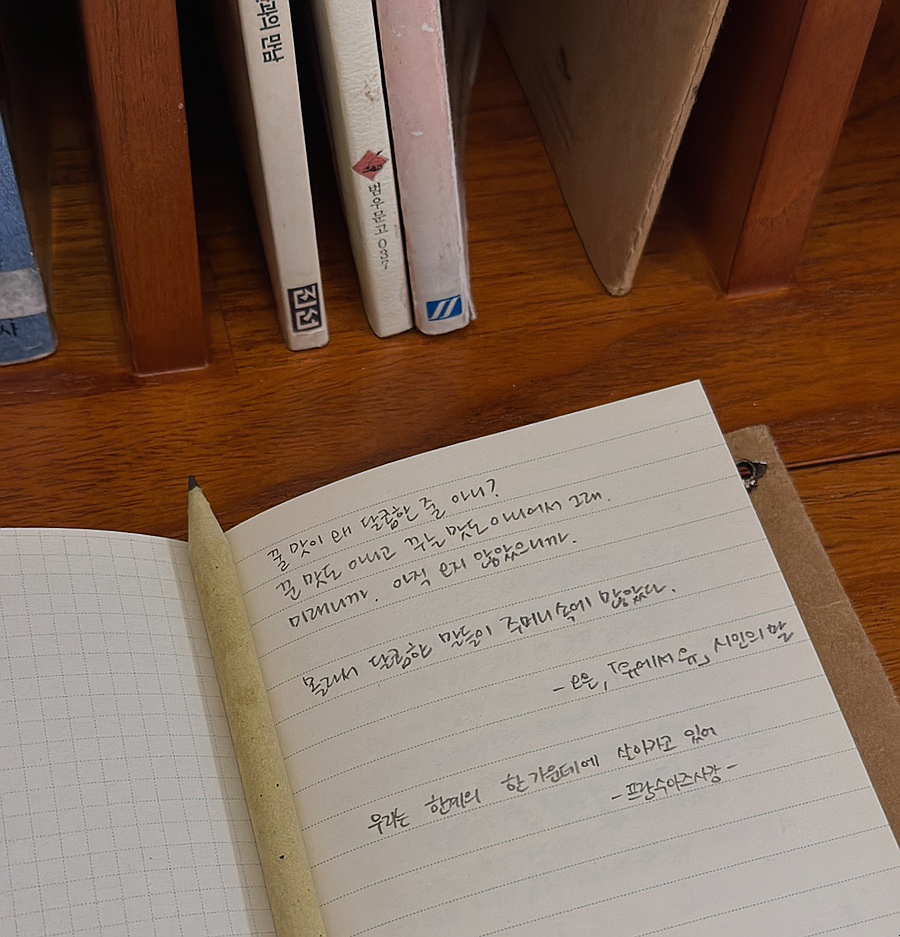 과의 만남
진선
범우문고 037
사
꿀맛이 왜 달콤한 줄 아니?
꾼 맛도 아니고 꾸는 맛도 아니어서 그래.
미래니까. 아직 오지 않았으니까.
몰래서 달콤한 말들이 주머니 속에 많았다.
- 오은, 『유에서 유』 시인의 말
우리는 한계의 한가운데에 살아가고 있어
- 프랑수아즈사강 -